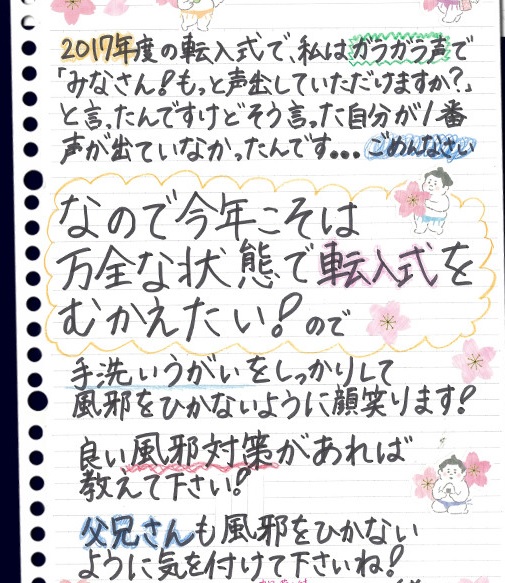 2017年度の転入式で、私はガラガラ声で
「みなさん!もっと声出していただけますか?」
と言ったんですけどそう言った自分が1番
声が出ていなかったんです...ごめんなさい
なので今年こそは
万全な状態で転入式を
むかえたい!ので
手洗いうがいをしっかりして
風邪をひかないように顔笑ります!
良い風邪対策があれば
教えて下さい!
父兄さんも風邪をひかない
ように気を付けて下さいね!